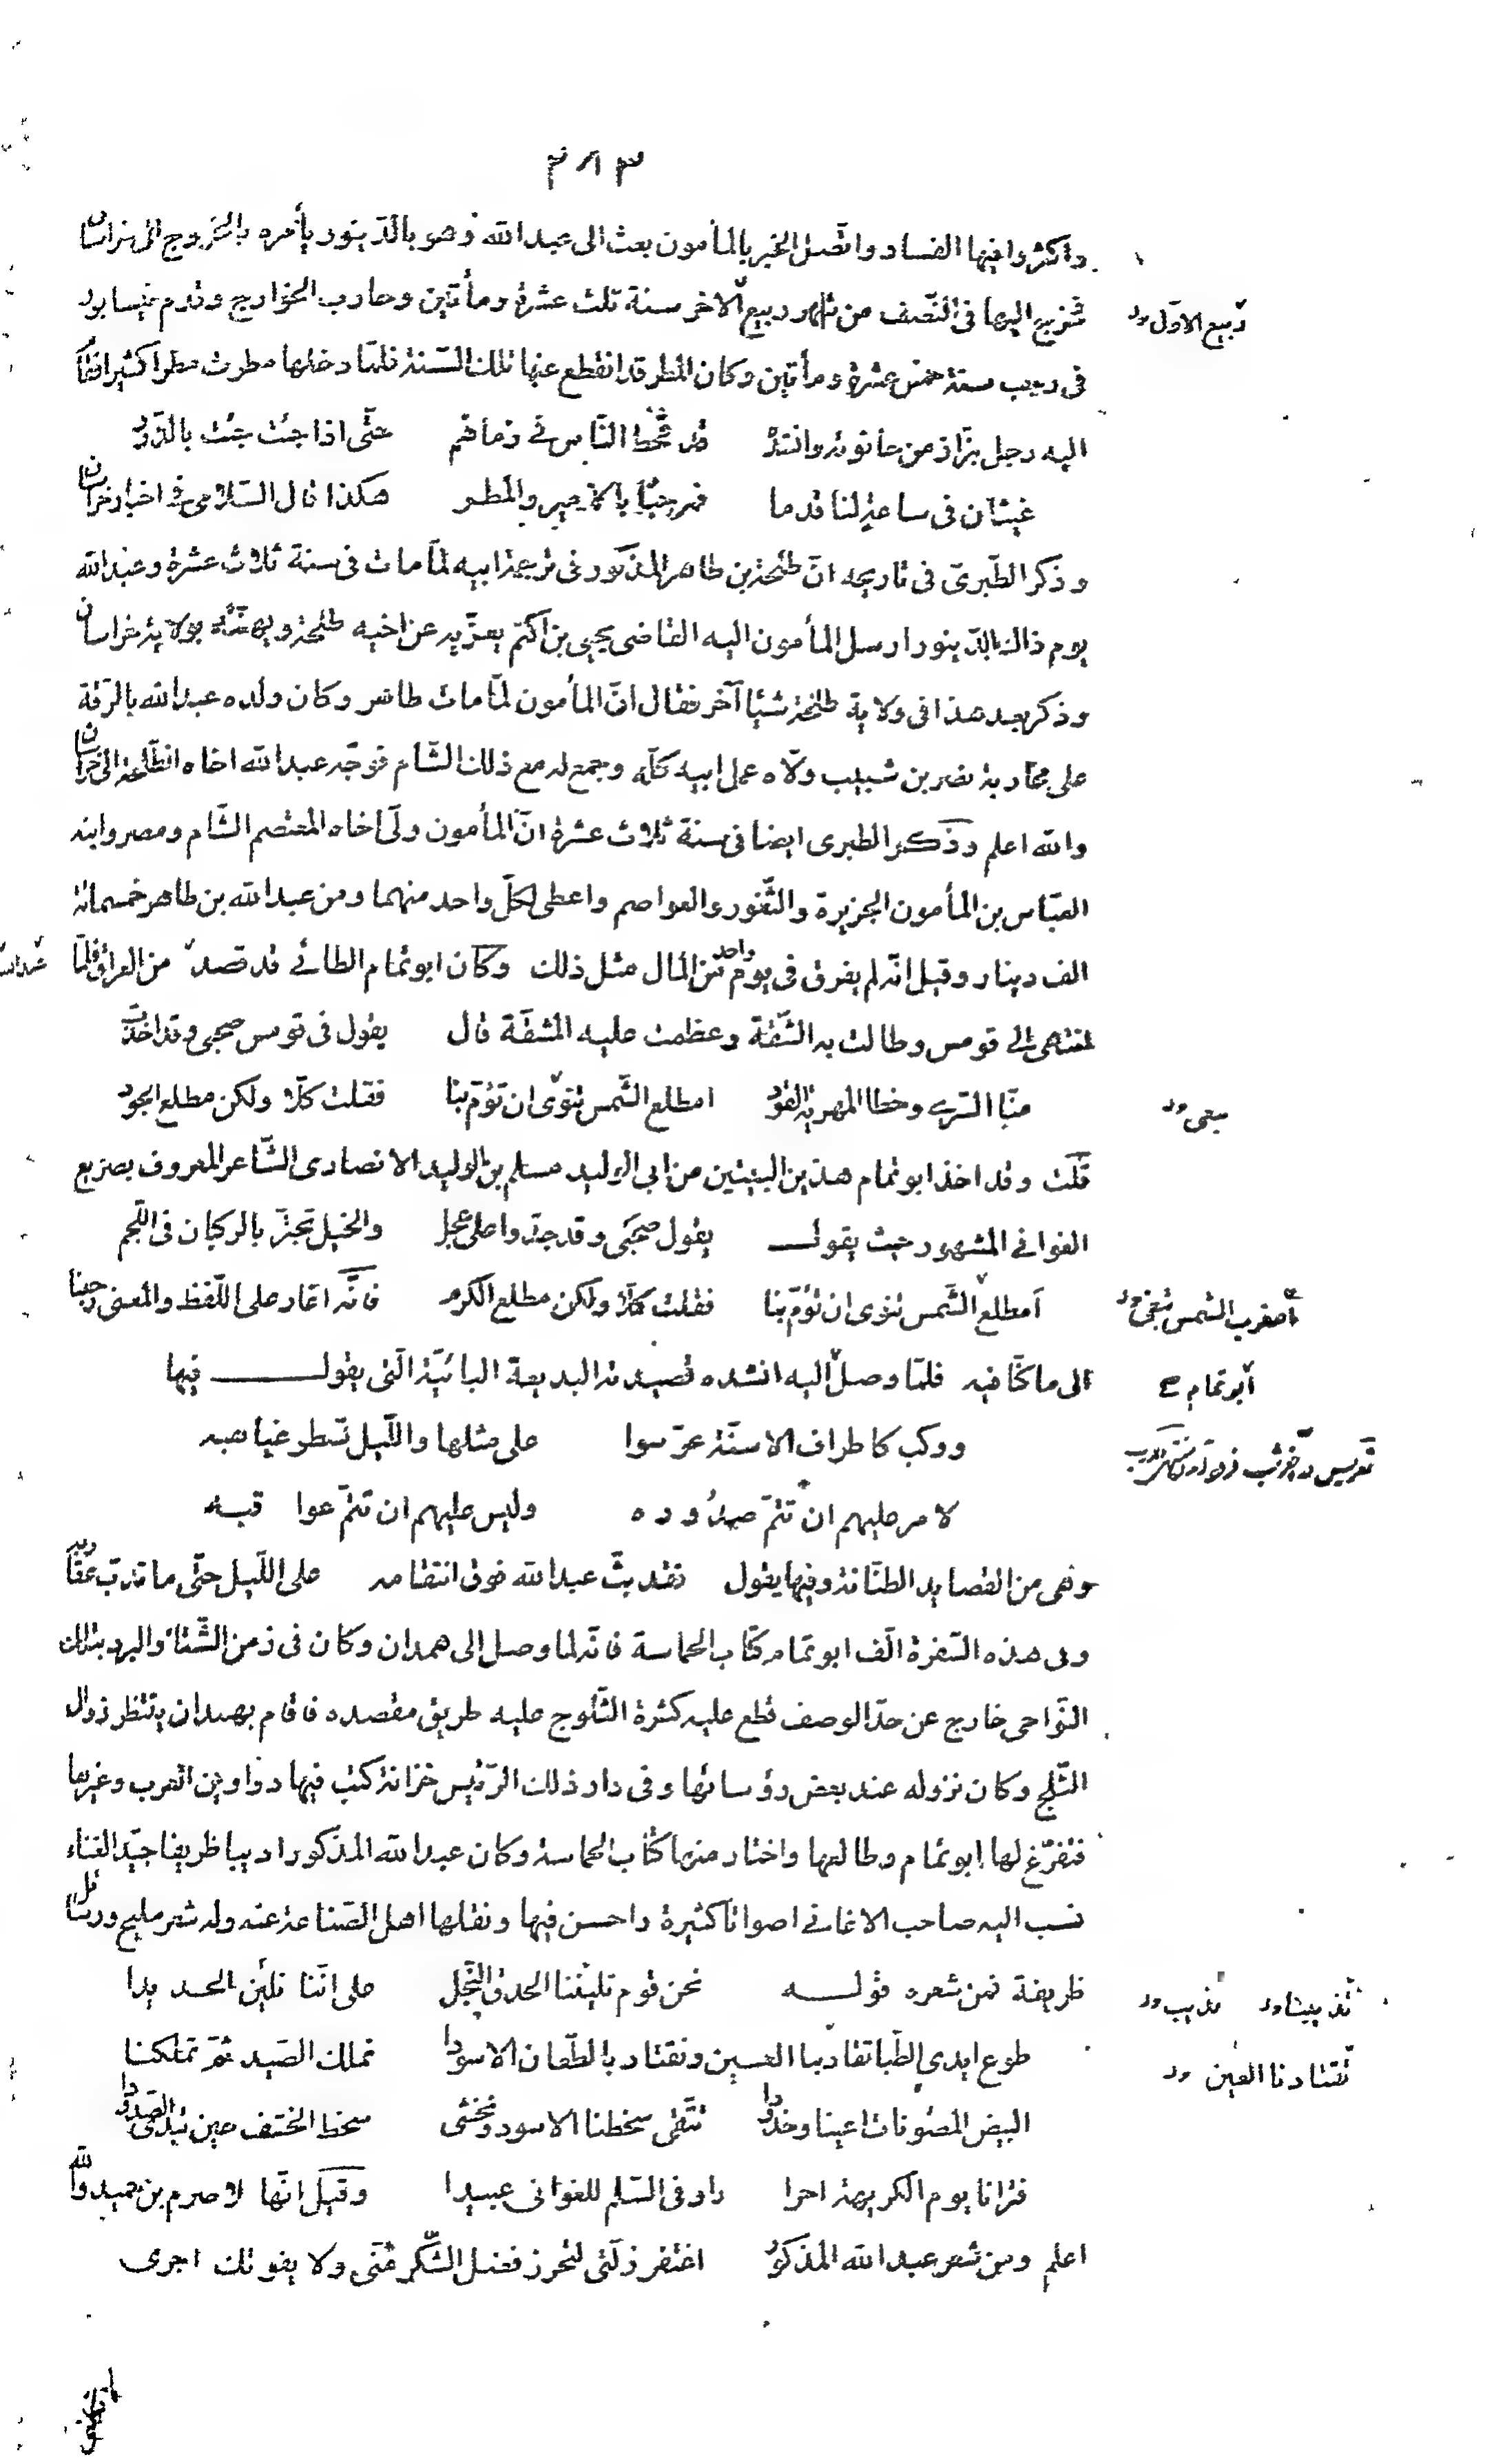 ٣٨٣
واكثروا فيها الفساد واتّصل الخبر بالمأمون بعث الى عبد الله وهو بالدّينور يأمره بالخروج الى خراسان
فخرج اليها فى النّصف من شهر ربيع الاخر سنة ثلث عشرة ومأتين وحارب الخوارج وقدم نيسابور
ربيع الاوّل
فى رجب سنة خمس عشرة ومأتين وكان المطر قد انقطع عنها تلك السّنة فلمّا دخلها مطرت مطرا كثيرا فقام
اليه رجل بزّاز من حانوته وانشد قد قحط النّاس فى زمانهم حتّى اذا جئت جئت بالدّرر
غيثان فى ساعة لنا قدما فمرحبًا بالامير والمطر هكذا قال السّلامى فى اخبار خراسان
وذكر الطّبرىّ فى تاريخه انّ طلحة بن طاهر المذكور فى ترجمة ابيه لمّا مات فى سنة ثلاث عشرة وعبد الله
يوم ذاك بالدّينور ارسل المأمون اليه القاضى يحيى بن اكثم يعزّيه عن اخيه طلحة ويهنّئه بولاية خراسان
وذكر بعد هذا فى ولاية طلحة شيئا آخر فقال انّ المأمون لمّا مات طاهر وكان ولده عبد الله بالرّقة
على محاربة نصر بن شبيب ولّاه عمل ابيه كلّه وجمع له مع ذلك الشّام فوجّه عبد الله اخاه طلحة الى خراسان
والله اعلم وذكر الطبرى ايضا فى سنة ثلاث عشرة انّ المأمون ولّى اخاه المعتصم الشّام ومصر وابنه
العبّاس بن المأمون الجزيرة والثّغور والعواصم واعطى لكلّ واحد منهما ومن عبد الله بن طاهر خمسمائة
الف دينار وقيل انّه لم يفرق فى يوم واحد من المال مثل ذلك وكان ابو تمام الطائى قد قصده من العراق فلمّا
انتهى الى قومس وطالت به الشّقّة وعظمت عليه المشقّة قال يقول فى قومس صحبى وقد اخذت
منّا السّرى وخطا المهريّة القود امطلع الشّمس تنوى ان تؤمّ بنا فقلت كلّا ولكن مطلع الجود
تبغى
قلت وقد اخذ ابو تمام هذين البيتين من ابى الوليد مسلم بن الوليد الانصارى الشّاعر المعروف بصريع
الغوانى المشهور حيث يقول يقول صحبى وقد جدّوا على عجل والخيل تجتزّ بالركبان فى اللّجم
أمطلع الشّمس تنوى ان تؤمّ بنا فقلت كلّا ولكن مطلع الكرم فانّه اغار على اللّفظ والمعنى رجعنا
أمغرب الشمس تبغى
الى ما كنّا فيه فلمّا وصل اليه انشده قصيدته البديعة البائيّة الّتى يقول فيها
ابو تمام
وركب كاطراف الاسنّة عرّسوا على مثلها واللّيل تسطو غياهبه
تعريس
لامر عليهم ان تتمّ صدوره وليس عليهم ان تتمّ عواقبه
وهى من القصايد الطنّانة وفيها يقول فقد بثّ عبد الله خوف انتقامه على اللّيل حتّى ما تدبّ عقاربه
وفى هذه السّفرة الّف ابو تمام كتاب الحماسة فانّه لما وصل الى همدان وكان فى زمن الشّتاء والبرد بتلك
النّواحى خارج عن حدّ الوصف قطع عليه كثرة الثّلوج عليه طريق مقصده فاقام بهمدان ينتظر زوال
الثّلج وكان نزوله عند بعض رؤسائها وفى دار ذلك الرّئيس خزانة كتب فيها دواوين العرب وغيرها
فتفرّغ لها ابو تمام وطالعها واختار منها كتاب الحماسة وكان عبد الله المذكور اديبا ظريفا جيّد الغناء
نسب اليه صاحب الاغانى اصواتا كثيرة واحسن فيها ونقلها اهل الصّناعة عنه وله شعر مليح ورسائل
ظريفة فمن شعره قوله نحن قوم تليننا الحدق النّجل على انّنا نلين الحديدا
تذيبنا نذيب
طوع ايدى الظّبا تقادنا العين ونقتاد بالطّعان الاسودا نملك الصّيد ثمّ تملكنا
تقتادنا العين
البيض المصونات اعينا وخدودا تتّقى سخطنا الاسود ونخشى سخط الخشف حين تبدى الصّدودا
فترانا يوم الكريهة احرا راو فى السّلم للغوانى عبيدا وقيل انّها لاصرم بن حميد والله
اعلم ومن شعر عبد الله المذكور اغتفر زلّتى لتحرز فضل الشّكر منّى ولا يفوتك اجرى